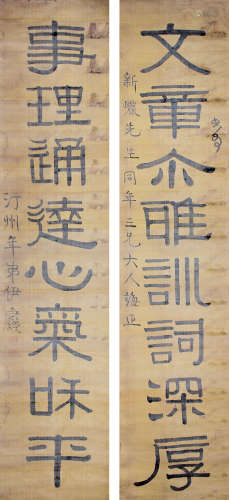 文章尒雅訓詞深厚
新先生同年三兄大人誨正
事理通達心氣和平
汀州年弟伊秉綬